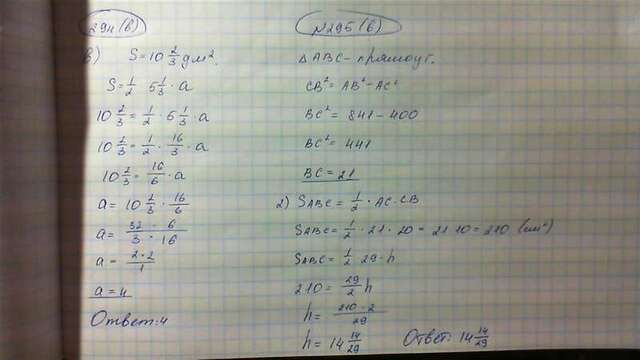 294(в)
в) S=10 2/3 дм².
S=1/2 5 1/3 · a
10 2/3 = 1/2 · 5 1/3 · a
10 2/3 = 1/2 · 16/3 · a
10 2/3 = 16/6 · a
a = 10 2/3 · 16/6
a = 32 · 6 / 3 · 16
a = 2 · 2 / 1
a = 4
Ответ: 4
№296(в)
△ABC - прямоуг.
CB² = AB² - AC²
BC² = 841 - 400
BC² = 441
BC = 21
2) SABC = 1/2 · AC · CB
SABC = 1/2 · 21 · 20 = 21 10 = 210 (см²)
SABC = 1/2 29 · h
210 = 29/2 h
h = 210 · 2 / 29
h = 14 14/29
Ответ: 14 14/29